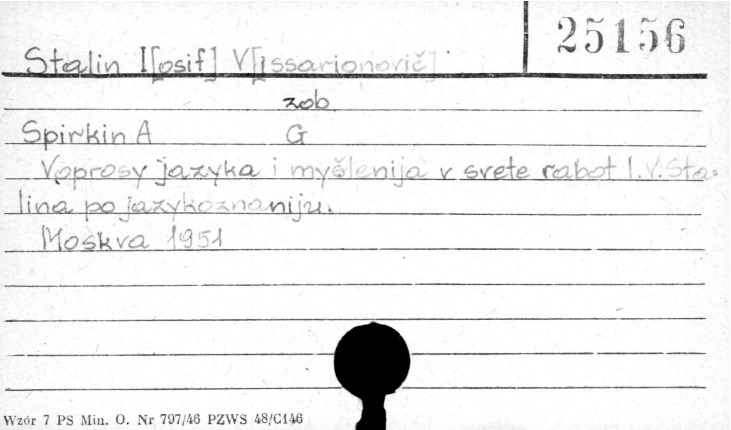 25156
Stalin I[osif] V[issarionovič]
zob
Spirkin A G
Voprosy jazyka i myšlenija v svete rabot I.V. Sta=
lina po jazykoznaniju.
Moskva 1951
Wzór 7 PS Min. O. Nr 797/46 PZWS 48/C146